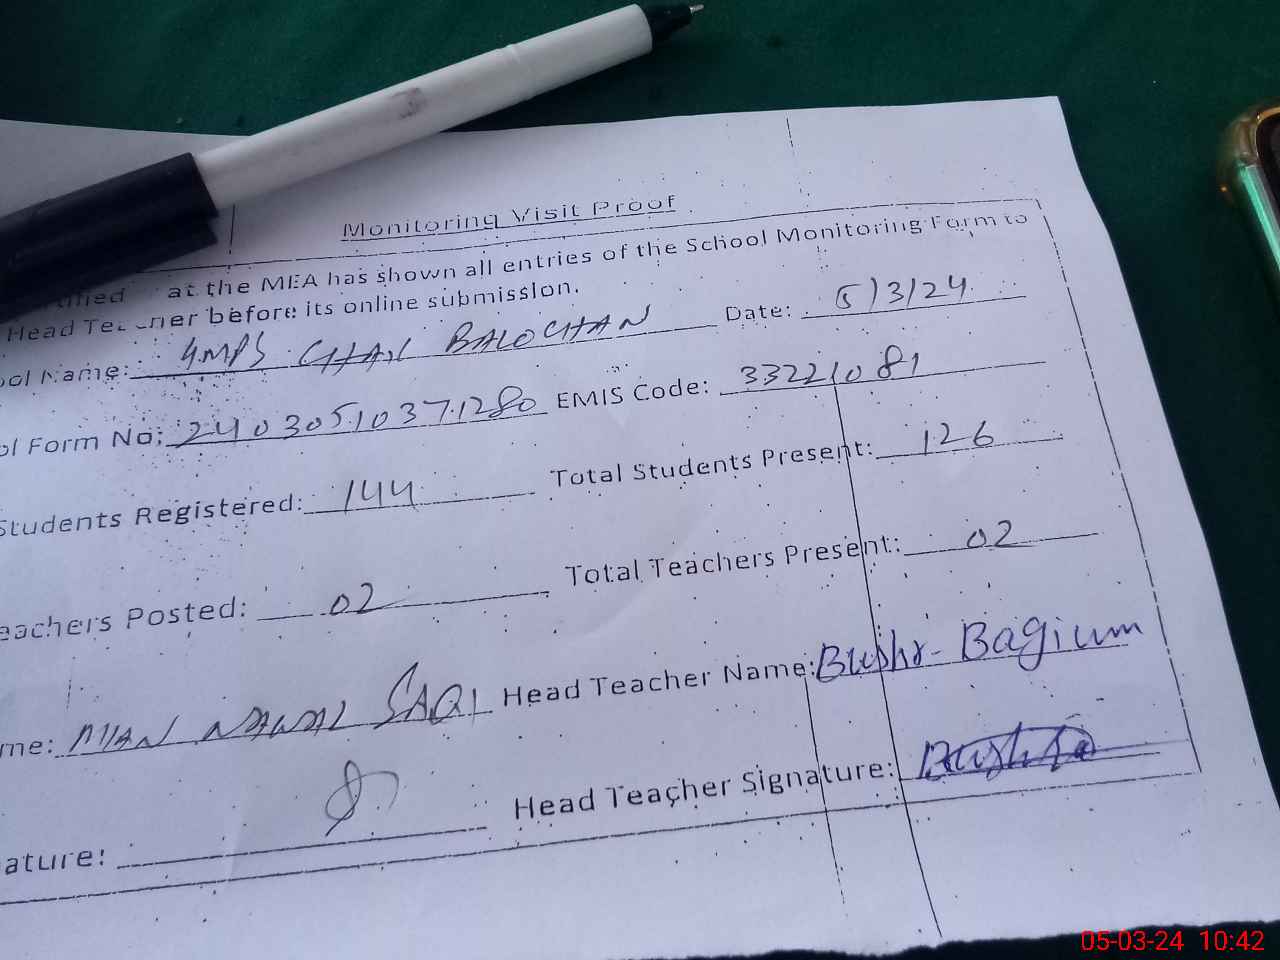 Monitoring Visit Proof
at the MEA has shown all entries of the School Monitoring Form to
Head Teacher before its online submission.
ool Name: GMPS CHAK BALOCHAN Date: 5/3/24
ol Form No: 24030510371280 EMIS Code: 33221081
Students Registered: 144 Total Students Present: 126
eachers Posted: 02 Total Teachers Present: 02
me: MIAN NAWAZ SAQI Head Teacher Name: Bushr- Bagium
ature: Head Teacher Signature: Bushra
05-03-24 10:42